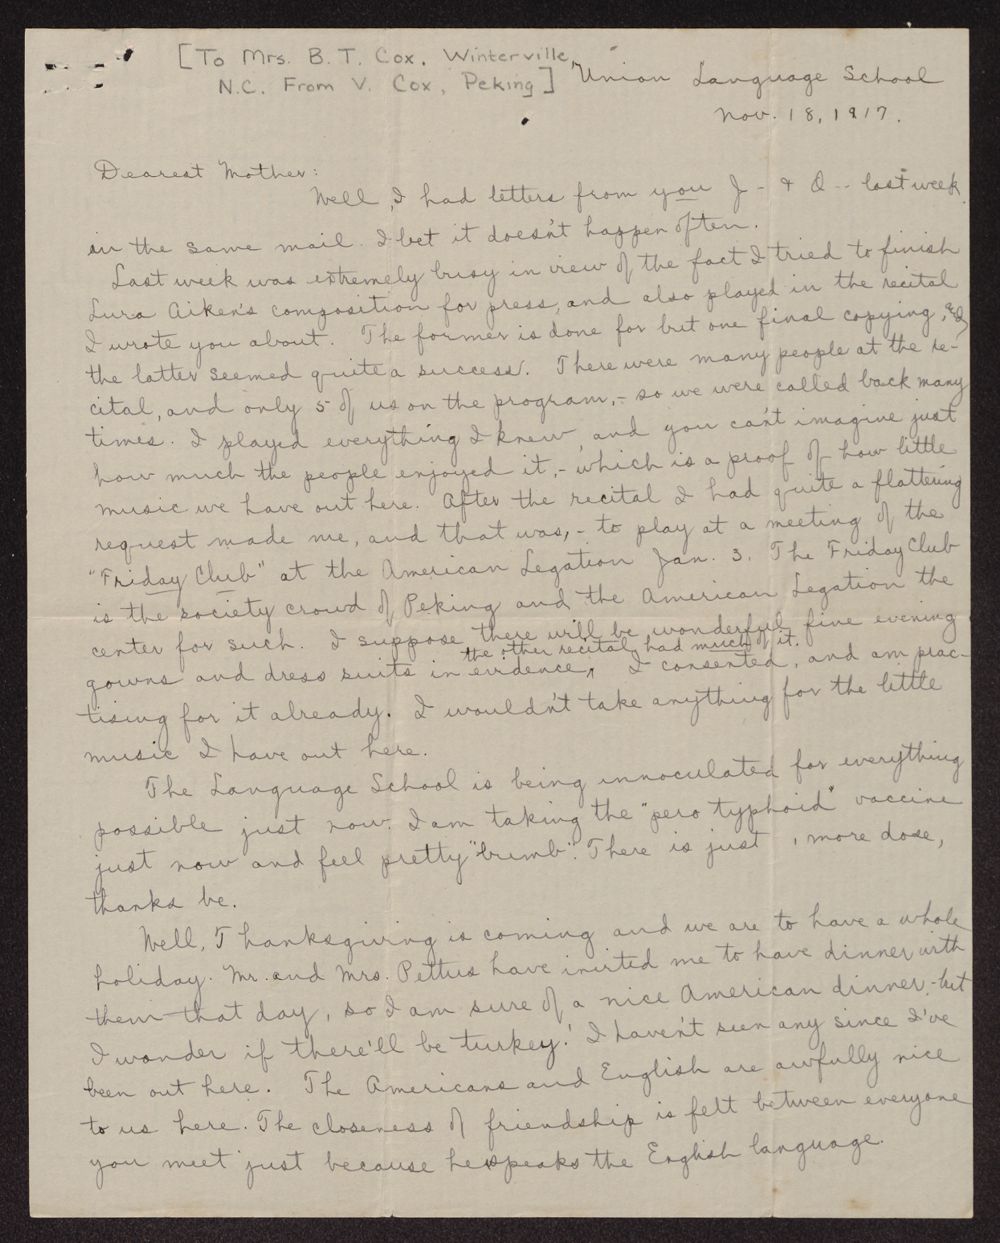 [To Mrs. B. T. Cox, Winterville,
N.C. From V. Cox, Peking]
Union Language School
Nov. 18, 1917.
Dearest Mother:
Well, I had letters from you J - & O -- last week
in the same mail. I bet it doesn't happen often.
Last week was extremely busy in view of the fact I tried to finish
Lura Aiken's composition for press, and also played in the recital
I wrote you about. The former is done for but one final copying, &
the latter seemed quite a success. There were many people at the re-
cital, and only 5 of us on the program, - so we were called back many
times. I played everything I knew, and you can't imagine just
how much the people enjoyed it, - which is a proof of how little
music we have out here. After the recital I had quite a flattering
request made me, and that was, - to play at a meeting of the
"Friday Club" at the American Legation Jan. 3. The Friday Club
is the society crowd of Peking and the American Legation the
center for such. I suppose there will be wonderful fine evening
the other recital had much of it.
gowns and dress suits in evidence, I consented, and am prac-
tising for it already. I wouldn't take anything for the little
music I have out here.
The Language School is being innoculated for everything
possible just now. I am taking the "pero typhoid" vaccine
just now and feel pretty "bumb". There is just 1 more dose,
thanks be.
Well, Thanksgiving is coming and we are to have a whole
holiday. Mr. and Mrs. Pettus have invited me to have dinner with
them that day, so I am sure of a nice American dinner, - but
I wonder if there'll be turkey! I haven't seen any since I've
been out here. The Americans and English are awfully nice
to us here. The closeness of friendship is felt between everyone
you meet just because he speaks the English language.